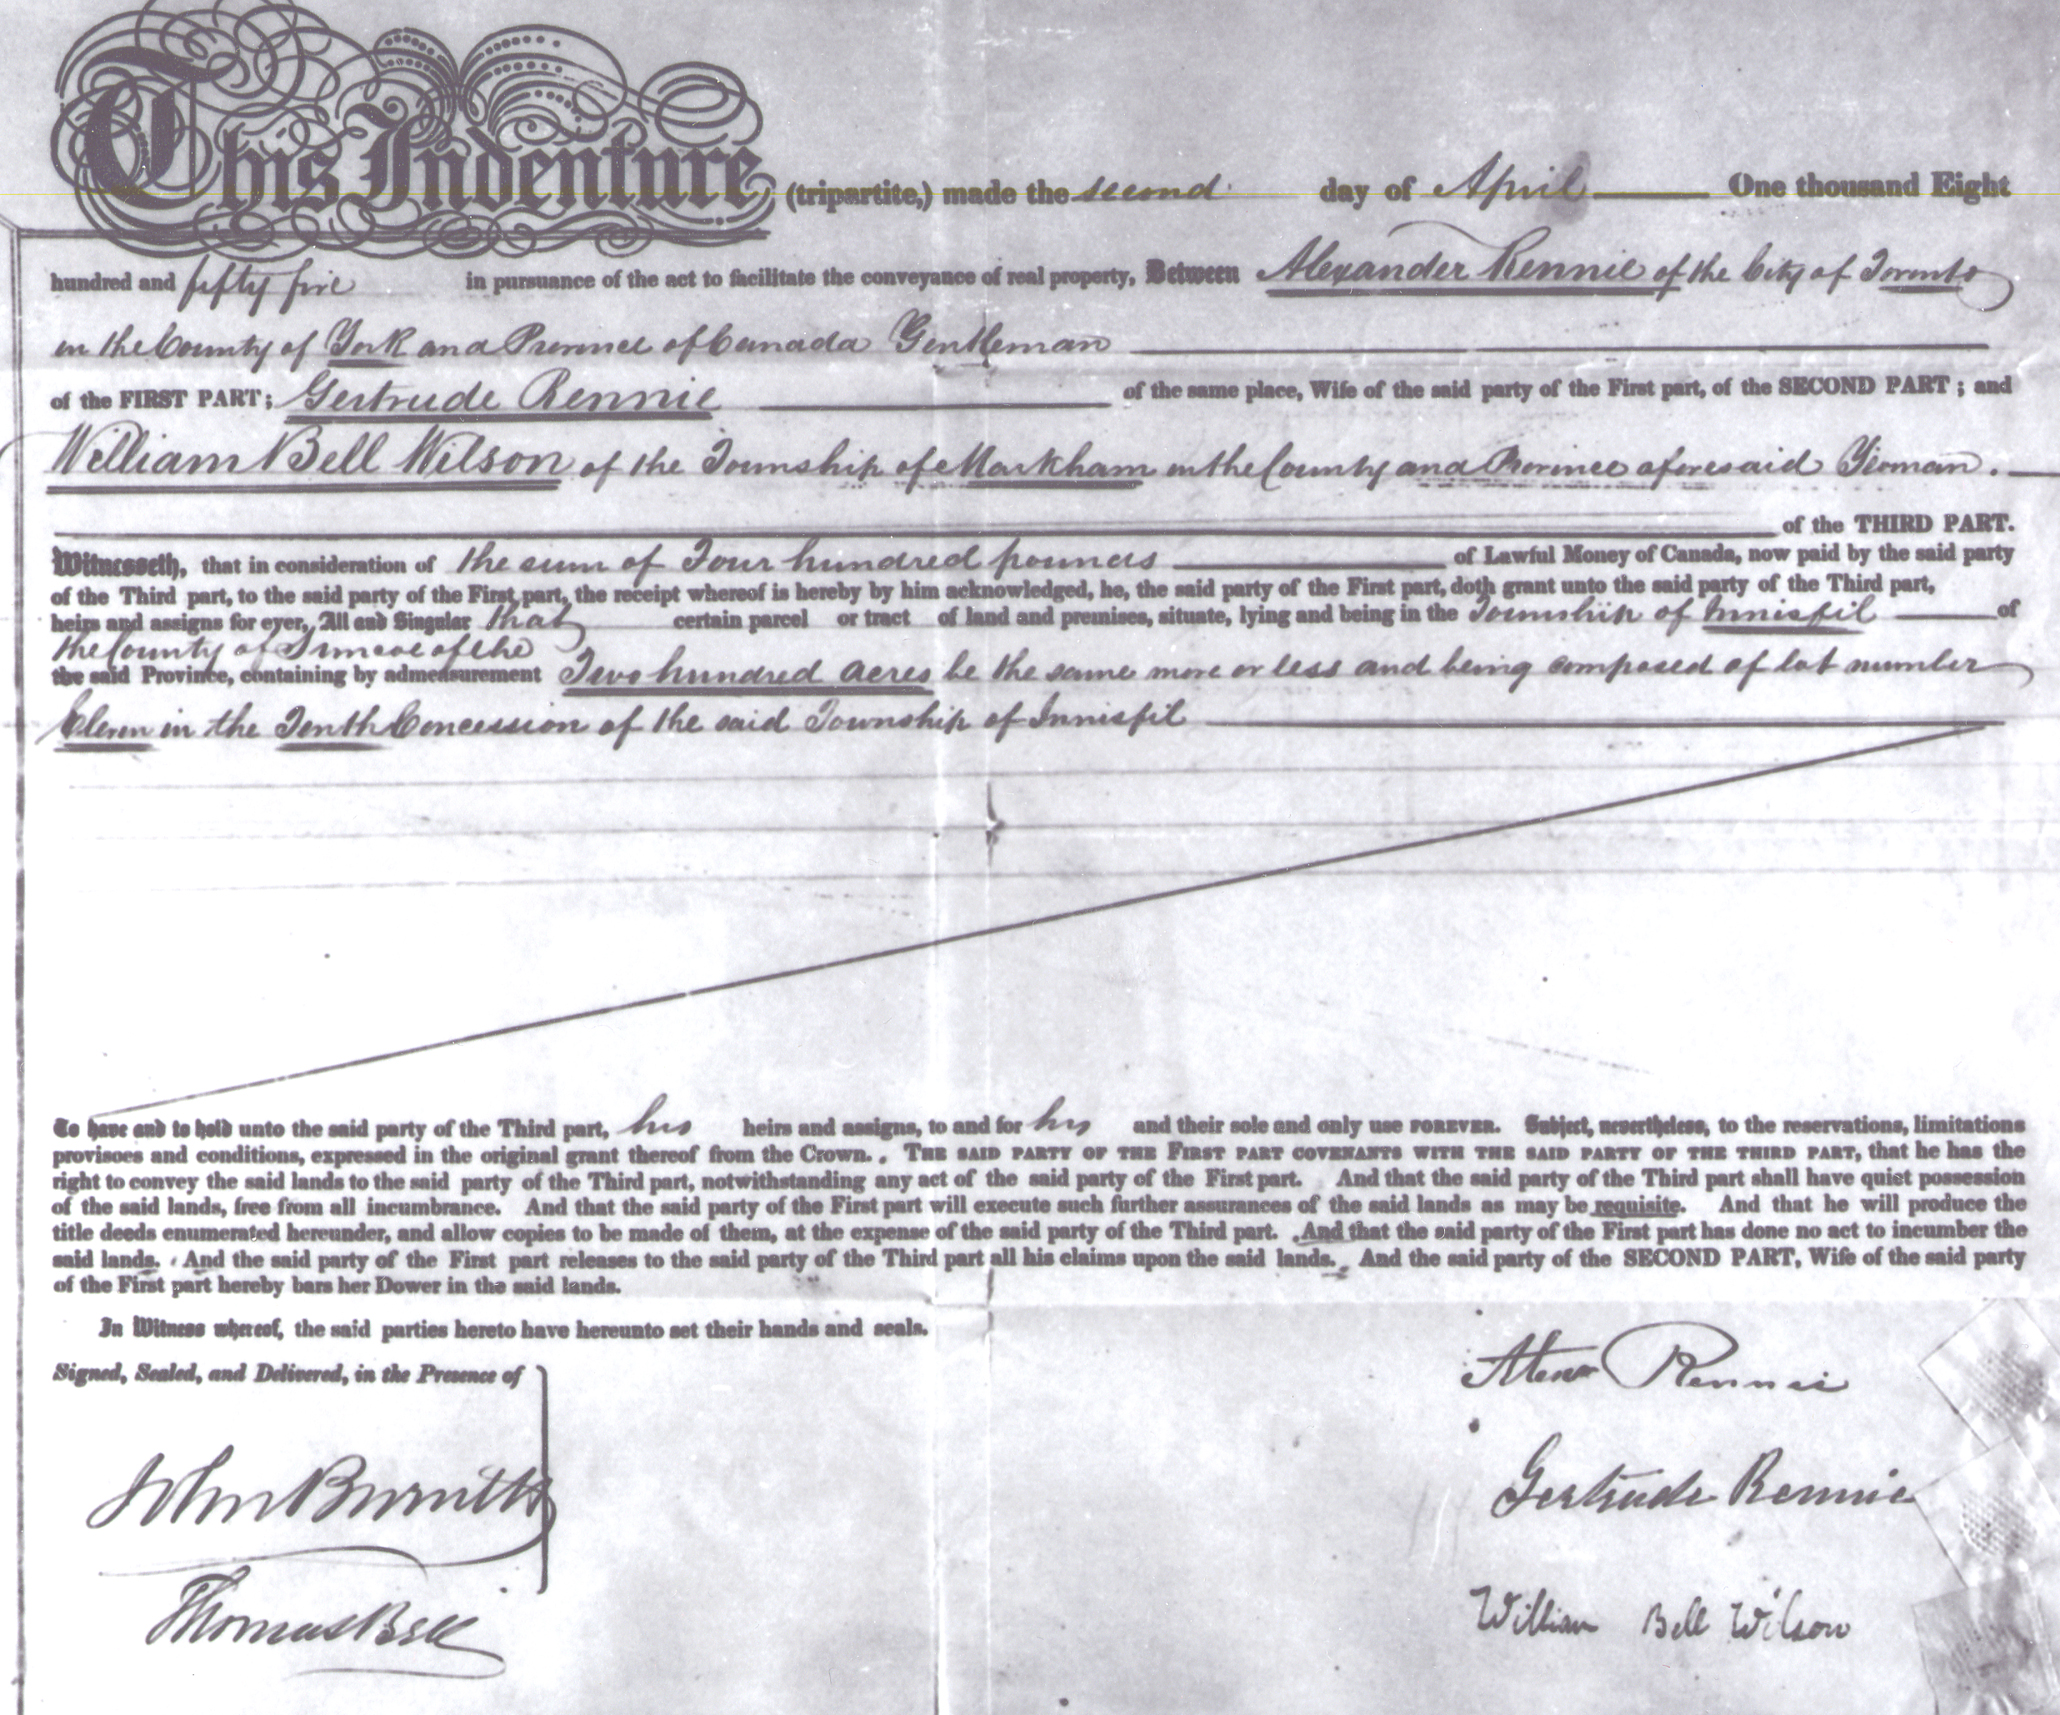 This Indenture (tripartite,) made the second day of April One thousand Eight
hundred and fifty five in pursuance of the act to facilitate the conveyance of real property, Between Alexander Rennie of the City of Toronto
in the County of York and Province of Canada Gentleman
of the FIRST PART; Gertrude Rennie of the same place, Wife of the said party of the First part, of the SECOND PART; and
William Bell Wilson of the Township of Markham in the County and Province aforesaid Yeoman.
of the THIRD PART.
Witnesseth, that in consideration of the sum of Four hundred pounds of Lawful Money of Canada, now paid by the said party
of the Third part, to the said party of the First part, the receipt whereof is hereby by him acknowledged, he, the said party of the First part, doth grant unto the said party of the Third part,
heirs and assigns for ever, All and Singular that certain parcel or tract of land and premises, situate, lying and being in the Township of Innisfil of
the County of Simcoe of the
the said Province, containing by admeasurement Two hundred acres be the same more or less and being composed of lot number
Eleven in the Tenth Concession of the said Township of Innisfil
To have and to hold unto the said party of the Third part, his heirs and assigns, to and for his and their sole and only use FOREVER. Subject, nevertheless, to the reservations, limitations
provisoes and conditions, expressed in the original grant thereof from the Crown. THE SAID PARTY OF THE FIRST PART COVENANTS WITH THE SAID PARTY OF THE THIRD PART, that he has the
right to convey the said lands to the said party of the Third part, notwithstanding any act of the said party of the First part. And that the said party of the Third part shall have quiet possession
of the said lands, free from all incumbrance. And that the said party of the First part will execute such further assurances of the said lands as may be requisite. And that he will produce the
title deeds enumerated hereunder, and allow copies to be made of them, at the expense of the said party of the Third part. And that the said party of the First part has done no act to incumber the
said lands. And the said party of the First part releases to the said party of the Third part all his claims upon the said lands. And the said party of the SECOND PART, Wife of the said party
of the First part hereby bars her Dower in the said lands.
In Witness whereof, the said parties hereto have hereunto set their hands and seals.
Signed, Sealed, and Delivered, in the Presence of
Alexr Rennie
John
Gertrude Rennie
Thomas Bell
William Bell Wilson